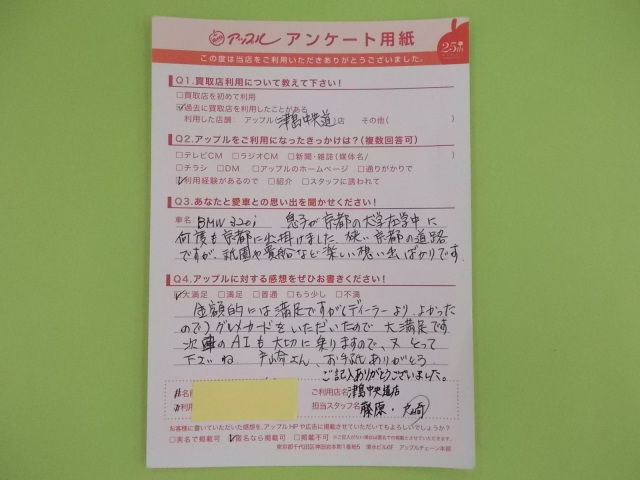 アップル アンケート用紙
25th
この度は当店をご利用いただきありがとうございました。
Q1.買取店利用について教えて下さい!
□買取店を初めて利用
☑過去に買取店を利用したことがある
利用した店舗: アップル(津島中央道)店 その他( )
Q2.アップルをご利用になったきっかけは?(複数回答可)
□テレビCM □ラジオCM □新聞・雑誌(媒体名/ )
□チラシ □DM □アップルのホームページ □通りがかりで
☑利用経験があるので □紹介 □スタッフに誘われて
Q3.あなたと愛車との思い出を聞かせください!
車名 BMW 320i 息子が京都の大学在学中に
何度も京都に出掛けました。狭い京都の道路
ですが、祇園や貴船など楽しい想い出ばかりです。
Q4.アップルに対する感想をぜひお書きください!
☑大満足 □満足 □普通 □もう少し □不満
金額的には満足ですが(ディーラーより よかった
ので)グルメカードをいただいたので 大満足です
次車のA1も大切に乗りますので、又 とって
下さいね 戸崎さん、お手紙ありがとう
ご記入ありがとうございました。
ご利用店名 津島中央道店
担当スタッフ名 藤原・戸崎
お客様に書いていただいた感想を、アップルHPや広告に掲載させていただいてもよろしいでしょうか?
□実名で掲載可 ☑匿名なら掲載可 □掲載不可
東京都千代田区神田岩本町1番地5 清水ビル6F アップルチェーン本部